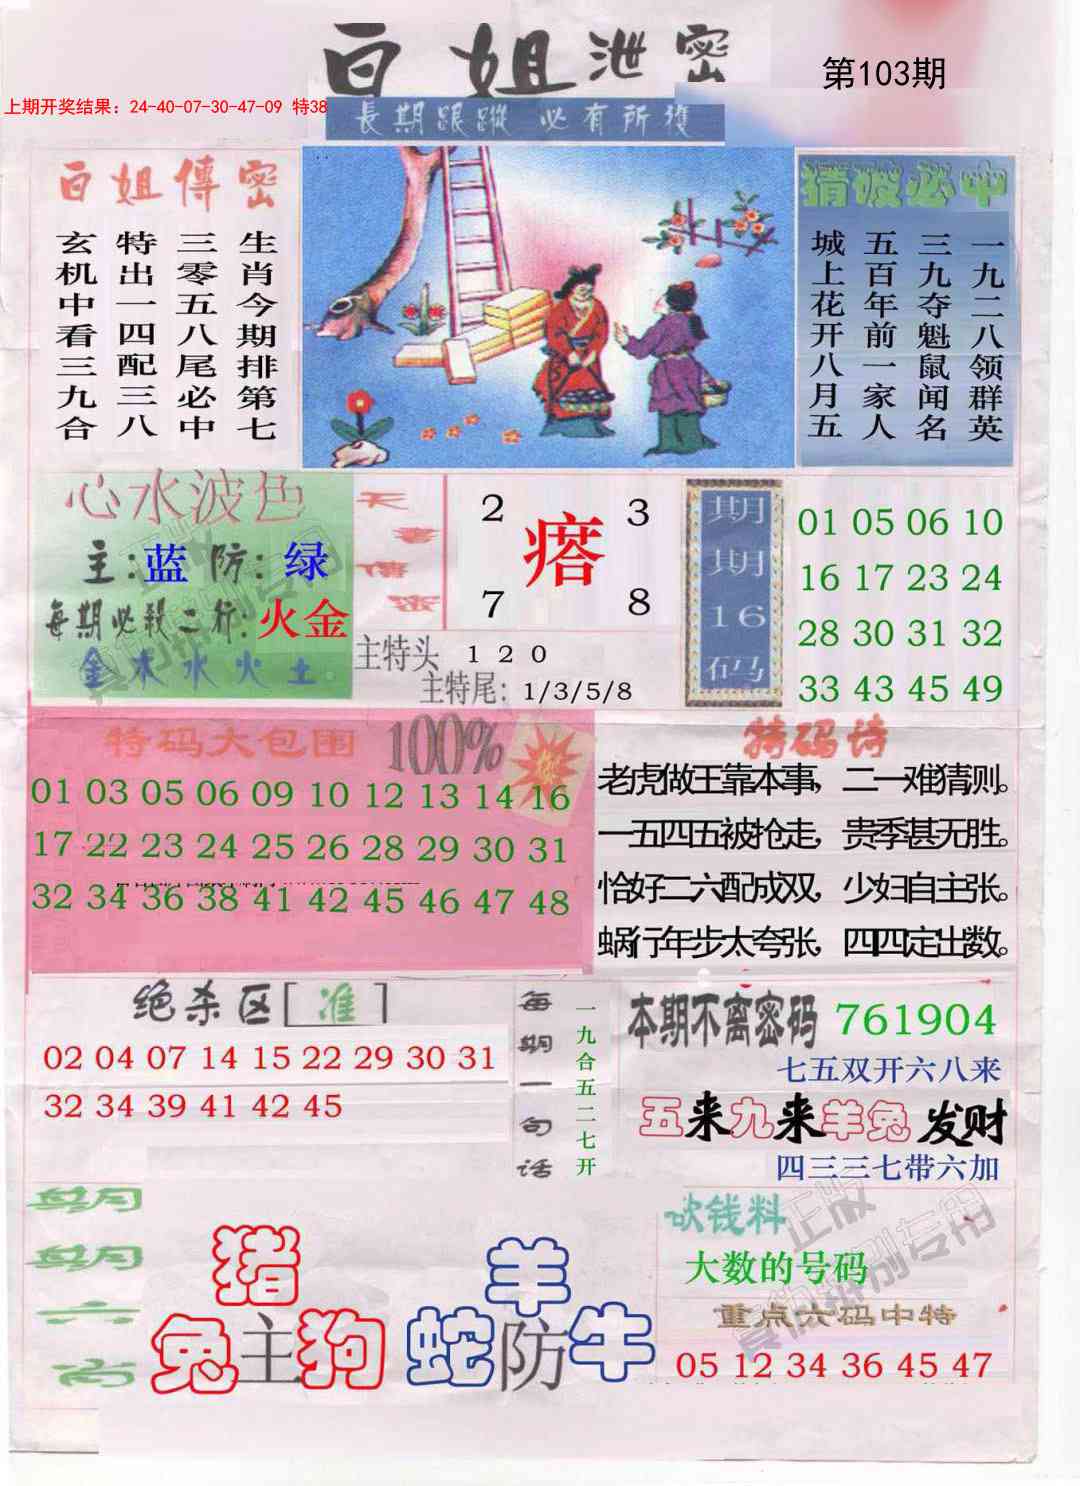 白姐泄密
第103期
上期开奖结果：24-40-07-30-47-09 特38
長期跟蹤 必有所獲
白姐傳密
生肖今期排第七
三零五八尾必中
特出一四配三八
玄机中看三九合
猜破必中
一九二八领群英
三九夺魁鼠闻名
五百年前一家人
城上花开八月五
心水波色
主：蓝 防：绿
每期必殺二行：火金
金木水火土
2 3
瘩
7 8
主特头 1 2 0
主特尾：1/3/5/8
期期16码
01 05 06 10
16 17 23 24
28 30 31 32
33 43 45 49
特码大包围 100%
01 03 05 06 09 10 12 13 14 16
17 22 23 24 25 26 28 29 30 31
32 34 36 38 41 42 45 46 47 48
特码诗
老虎做王靠本事，二一难猜则。
一五四五被抢走，贵季甚无胜。
恰好二六配成双，少妇自主张。
蜗行年步太夸张，四四定出数。
绝杀区[准]
02 04 07 14 15 22 29 30 31
32 34 39 41 42 45
每期一句话
一九合五二七开
本期不离密码 761904
七五双开六八来
五来九来羊兔 发财
四三三七带六加
期期六肖
猪
兔主狗
羊
蛇防牛
砍钱料
大数的号码
重点六码中特
05 12 34 36 45 47